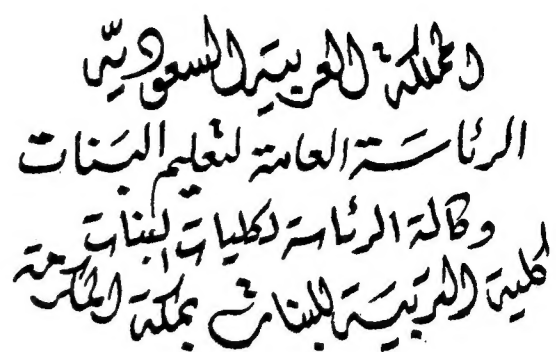 المملكة العربية السعودية
الرئاسة العامة لتعليم البنات
وكالة الرئاسة لكليات البنات
كلية التربية للبنات بمكة المكرمة